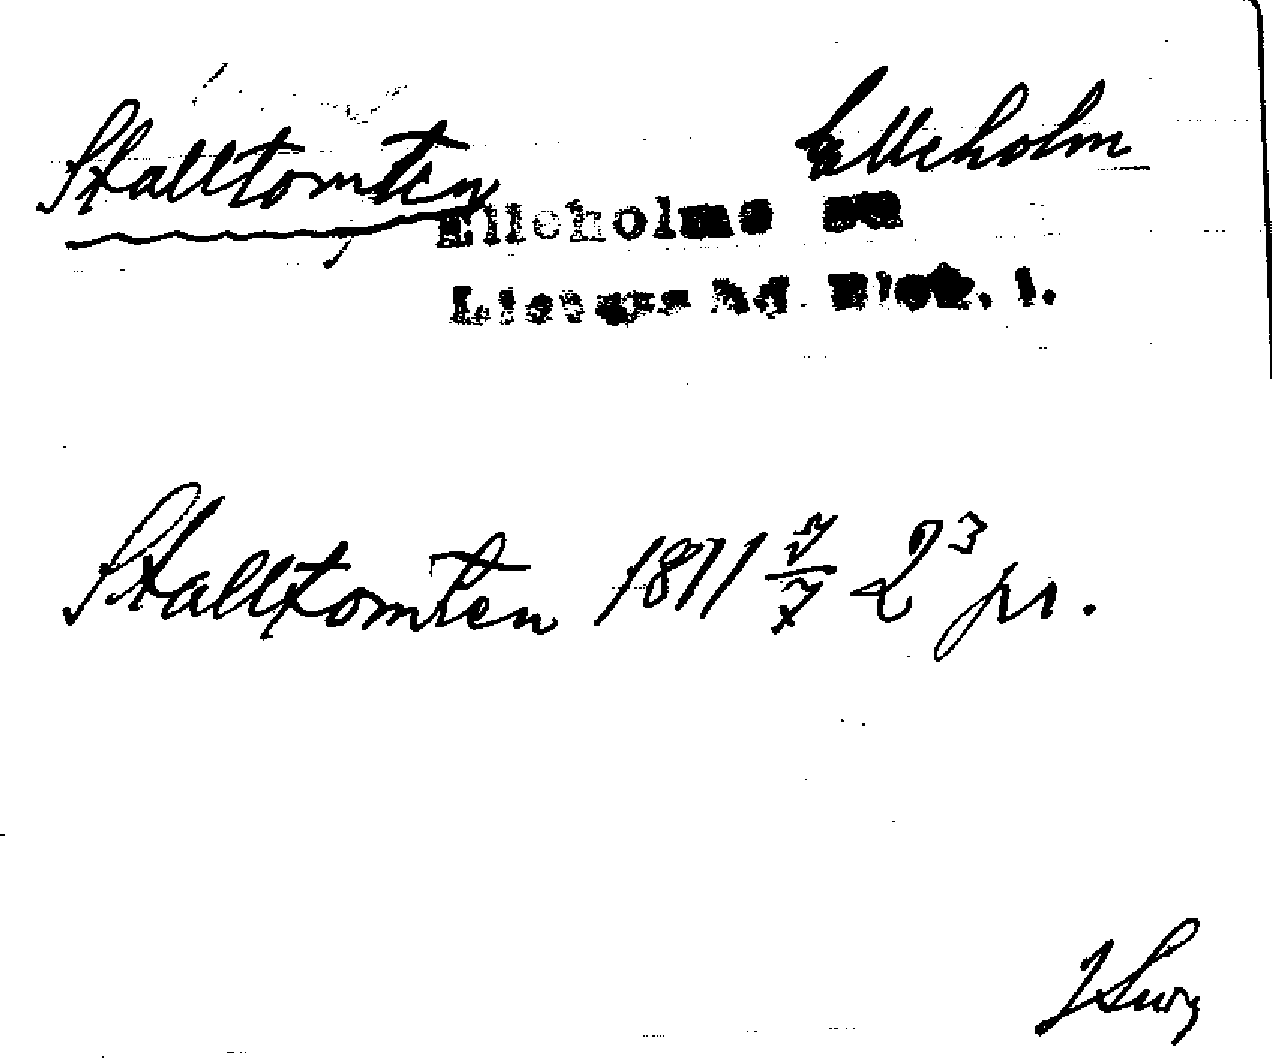 Stalltomten Elleholm
Elleholms sn
Listers hd Blek. l.
Stalltomten 1871 2³ pr.